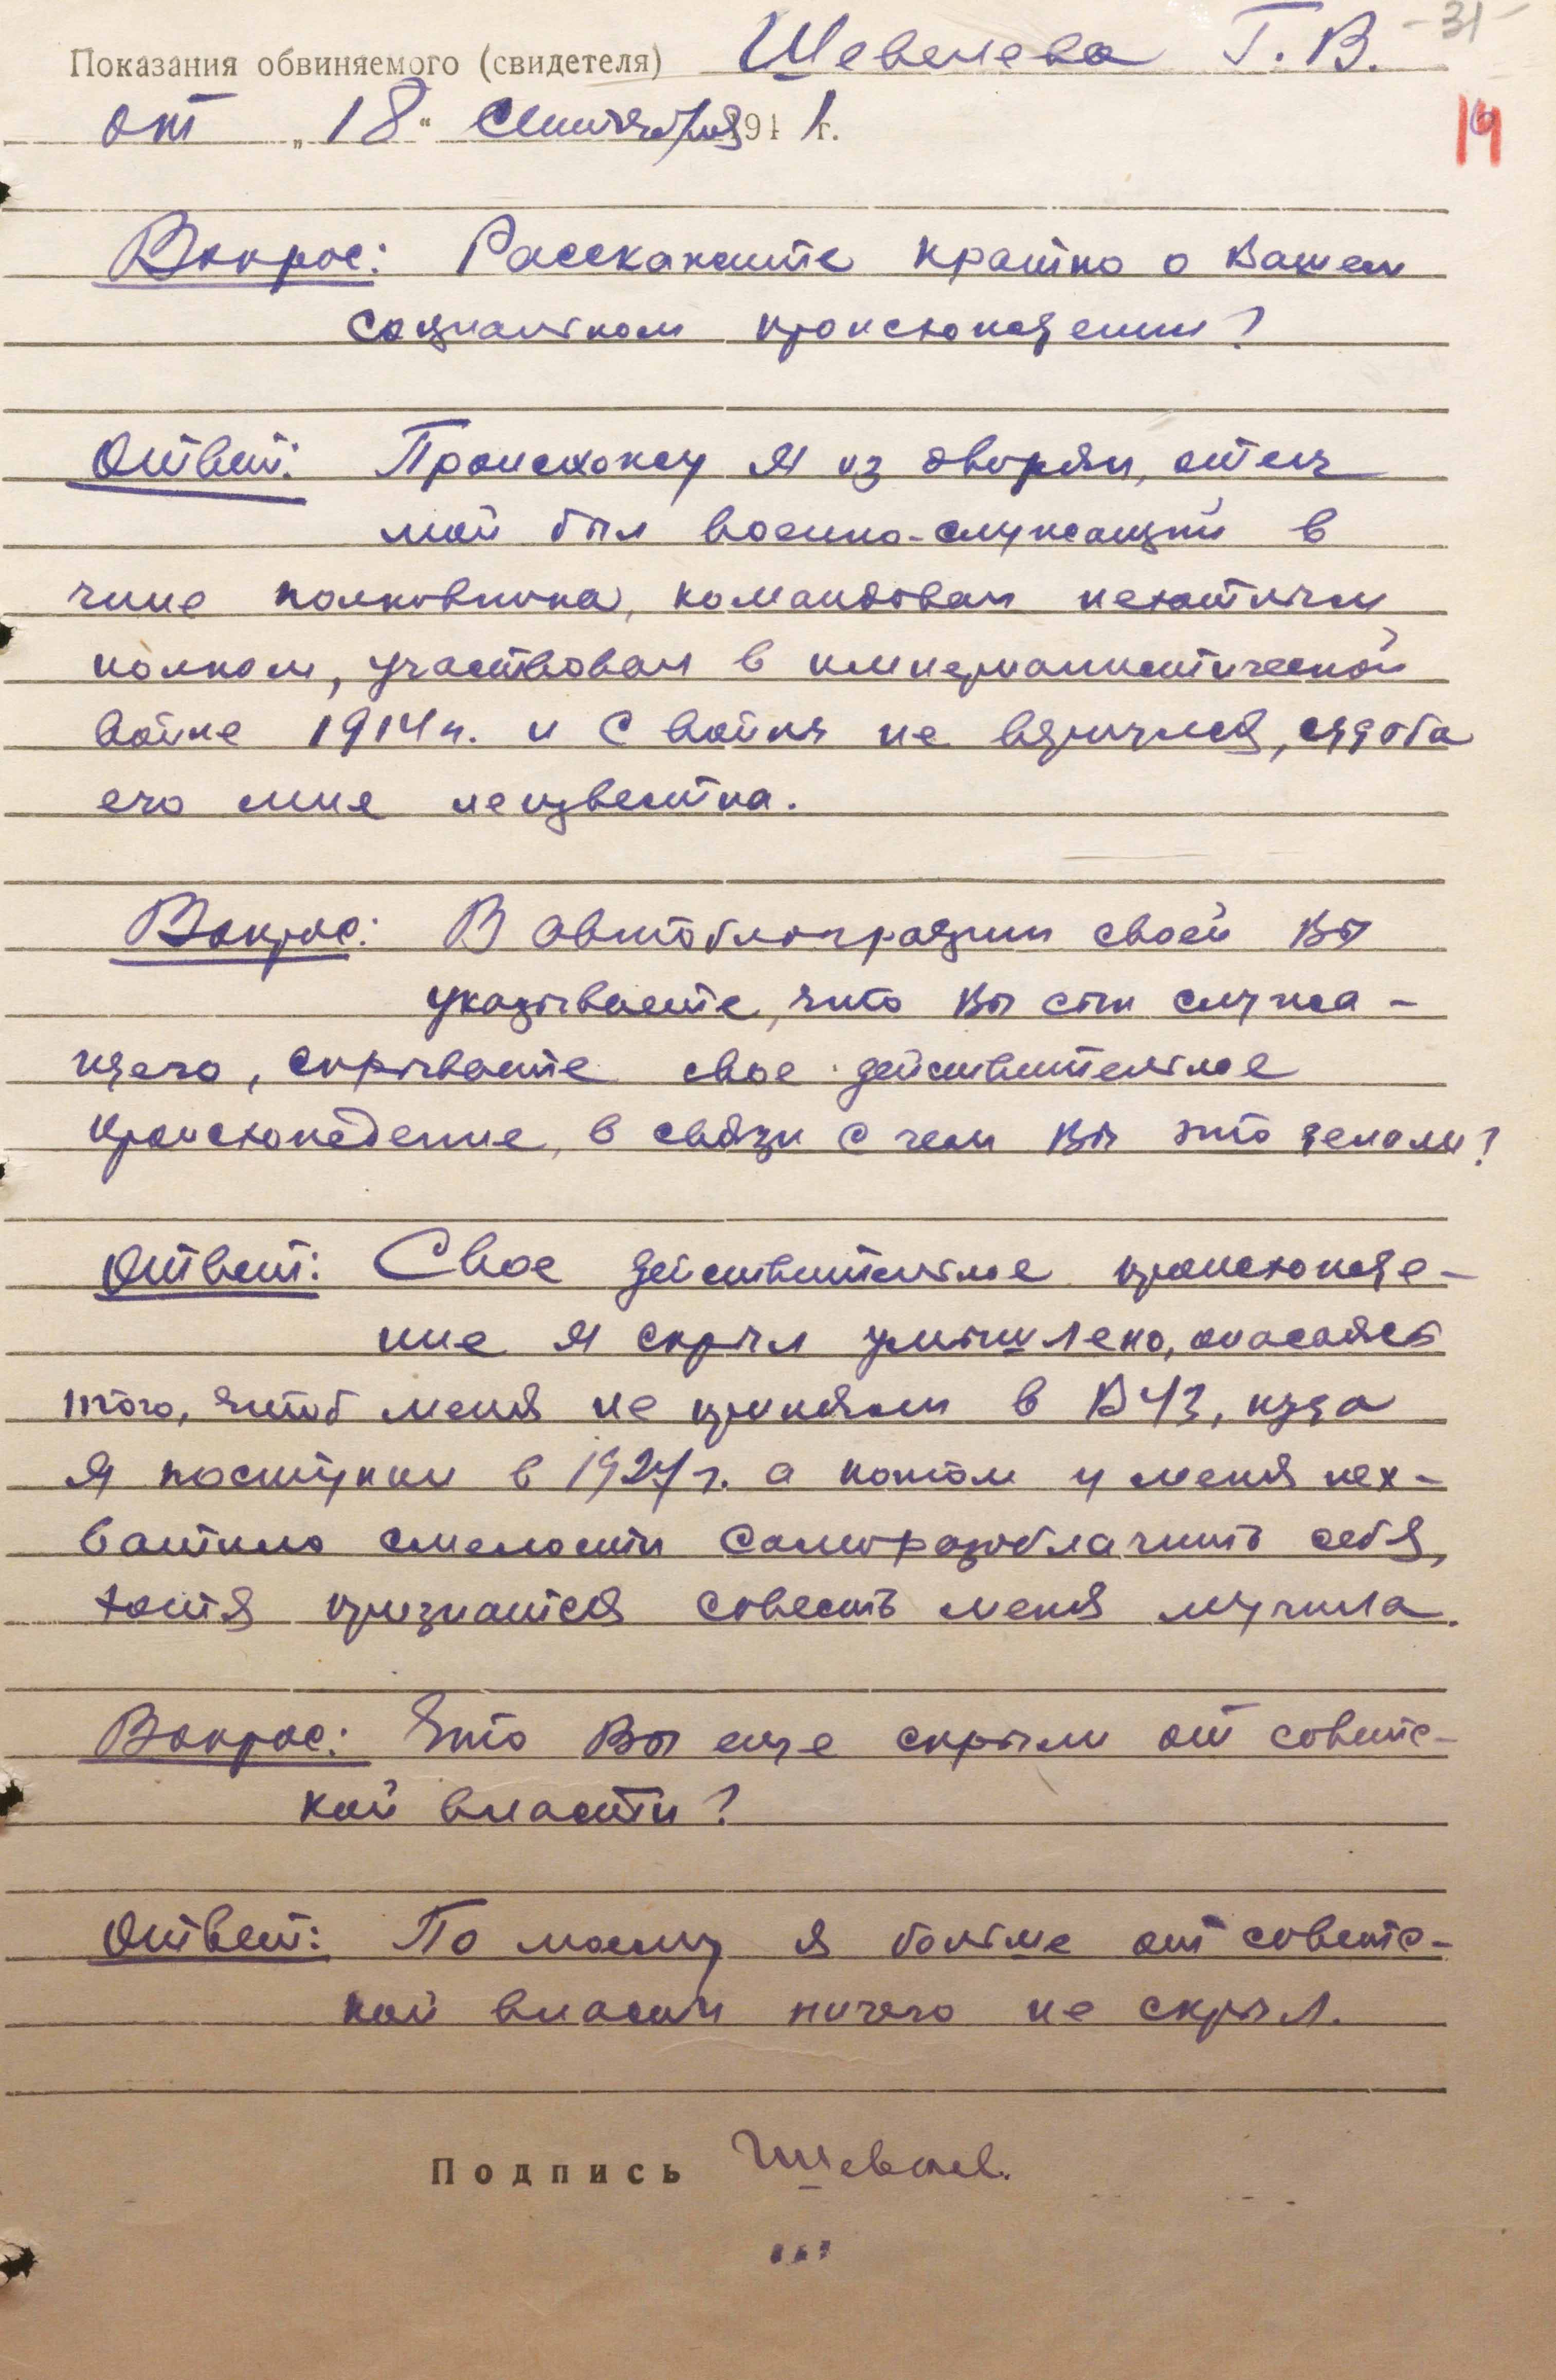 -31-
Показания обвиняемого (свидетеля) Шевелева Г. В.
от "18" Сентября 1941 г.
19
Вопрос: Расскажите кратко о Вашем
социальном происхождении?
Ответ: Происхожу я из дворян, отец
мой был военно-служащий в
чине полковника, командовал пехотным
полком, участвовал в империалистической
войне 1914 г. и с войны не вернулся, судьба
его мне неизвестна.
Вопрос: В автобиографии своей Вы
указываете, что Вы сын служа-
щего, скрываете свое действительное
происхождение, в связи с чем Вы это делали?
Ответ: Свое действительное происхожде-
ние я скрыл умышлено, опасаясь
того, чтоб меня не приняли в ВУЗ, куда
я поступил в 1927 г. а потом у меня нех-
ватило смелости саморазоблачить себя,
хотя признатся совесть меня мучила.
Вопрос: Что Вы еще скрыли от советс-
кой власти?
Ответ: По моему я больше от советс-
кой власти ничего не скрыл.
Подпись Шевелев.